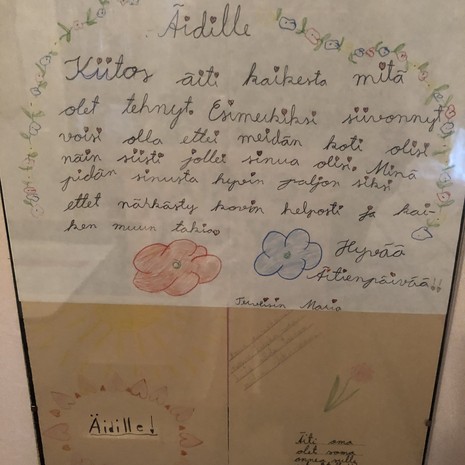 Äidille
Kiitos äiti kaikesta mitä
olet tehnyt. Esimerkiksi siivonnyt
voisi olla ettei meidän koti olisi
näin siisti jollei sinua olisi. Minä
pidän sinusta hyvin paljon siksi
ettet närkästy kovin helposti ja kai-
ken muun takia.
Hyvää
Äitienpäivää!!
Terveisin Maria
Äidille!
Äiti oma
olet